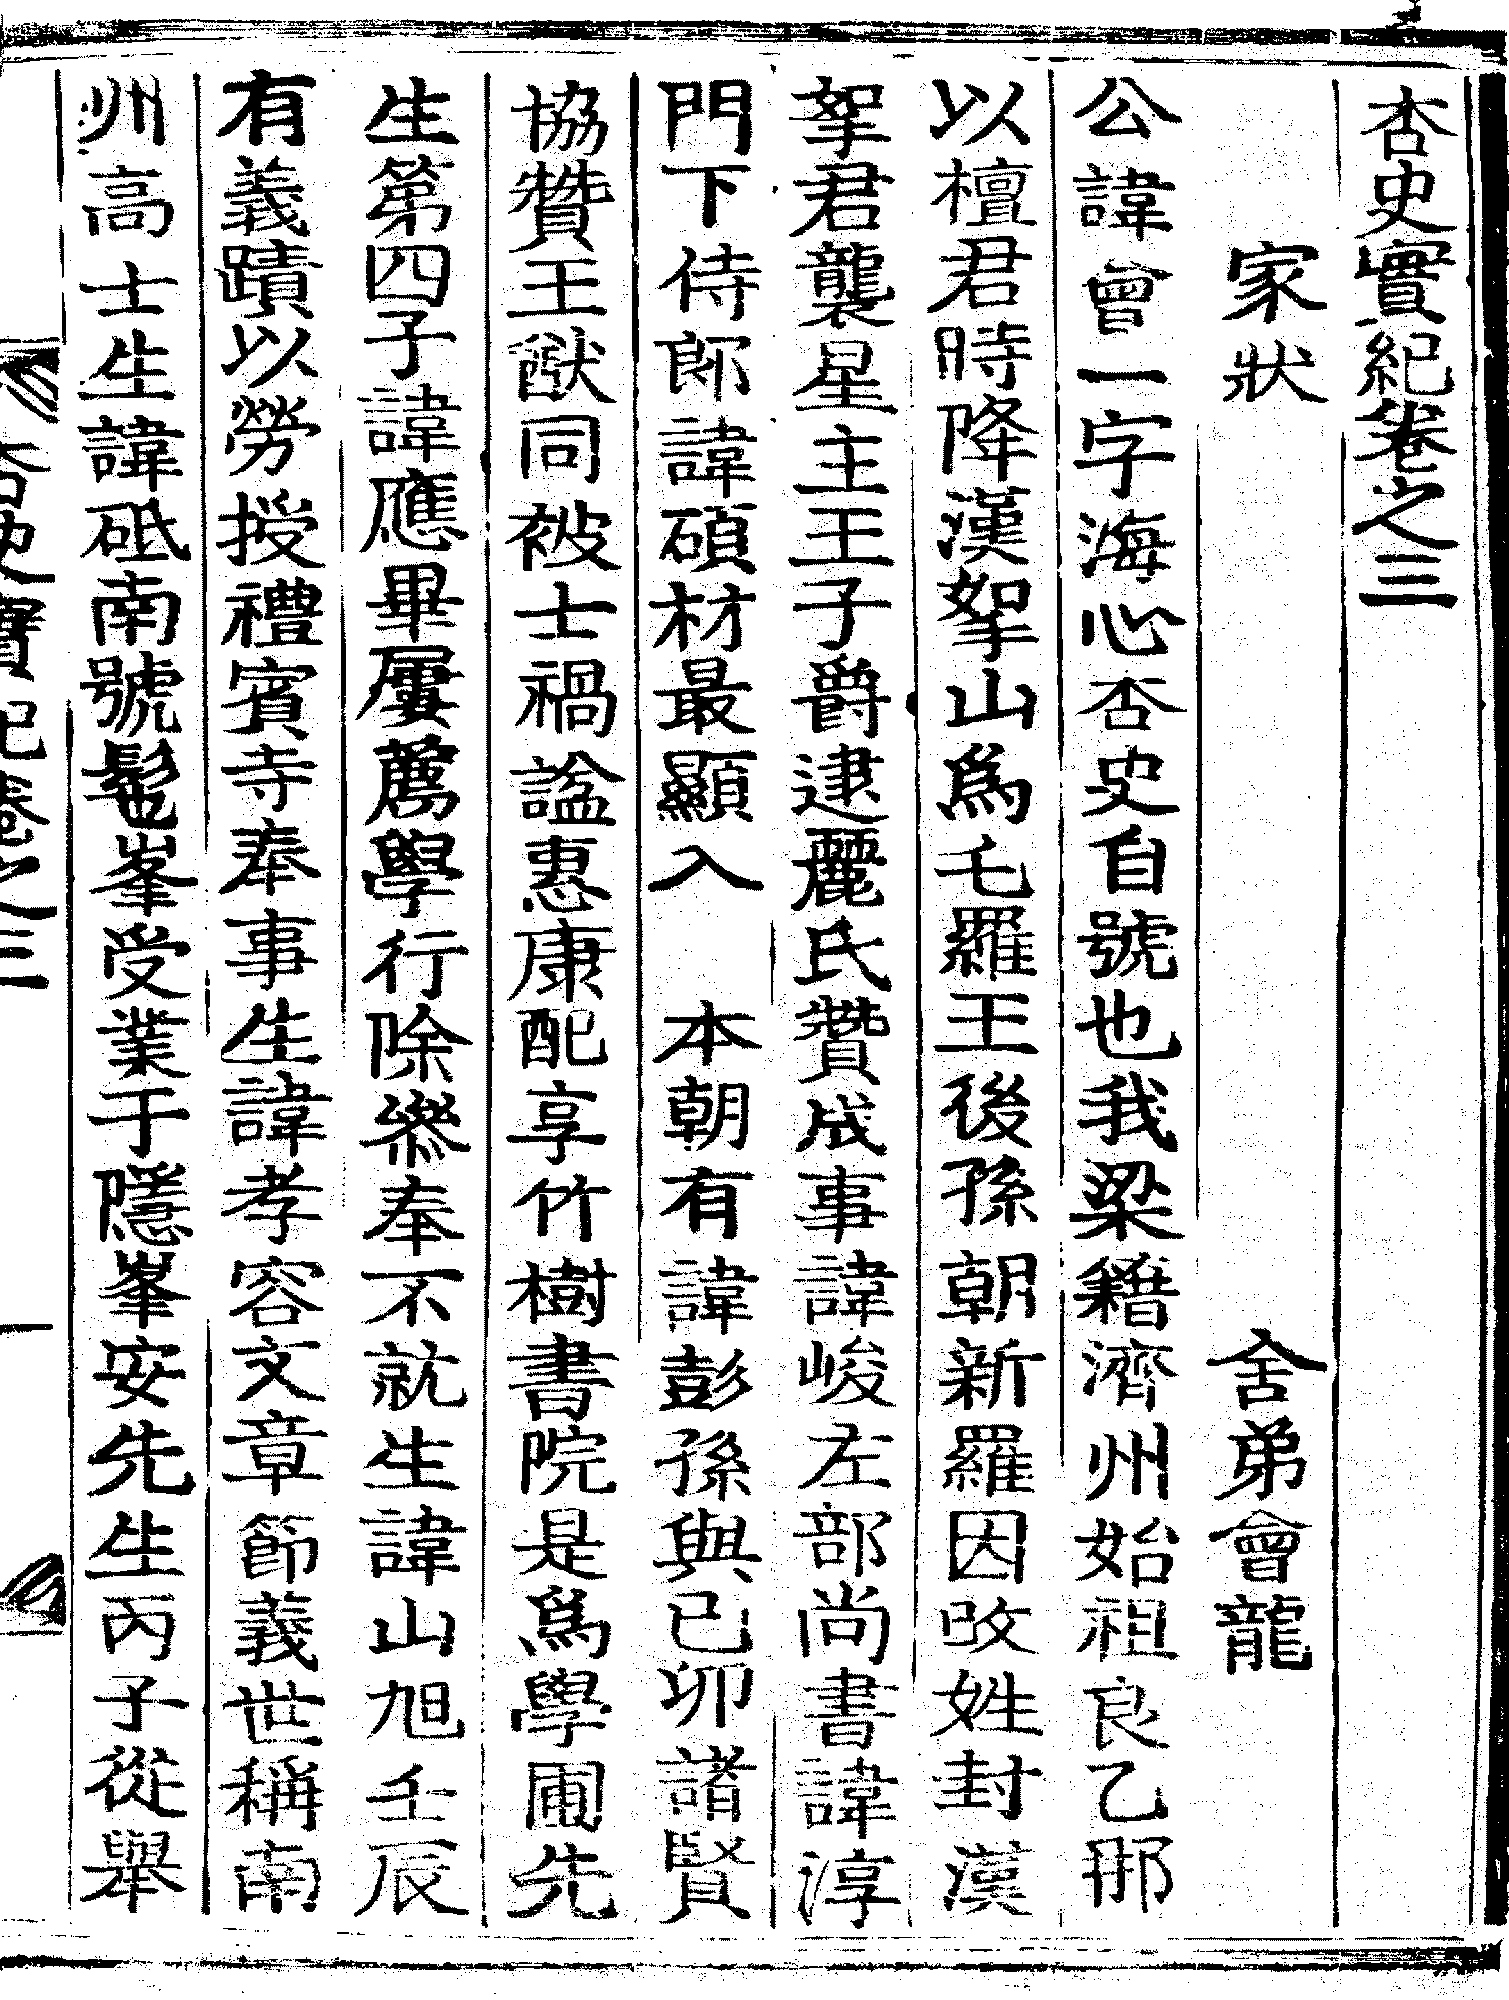 杏史實紀卷之三
家狀　舍弟會龍
公諱會一字海心杏史自號也我梁籍濟州始祖良乙那
以檀君時降漢拏山爲乇羅王後孫朝新羅因改姓封漢
拏君襲星主王子爵逮麗氏贊成事諱峻左部尚書諱淳
門下侍郎諱碩材最顯入　本朝有諱彭孫與己卯諸賢
協贊王猷同被士禍諡惠康配享竹樹書院是爲學圃先
生第四子諱應畢屢薦學行除叅奉不就生諱山旭壬辰
有義蹟以勞授禮賓寺奉事生諱孝容文章節義世稱南
州高士生諱砥南號髦峯受業于隱峯安先生丙子從舉
杏史實紀卷之三　一